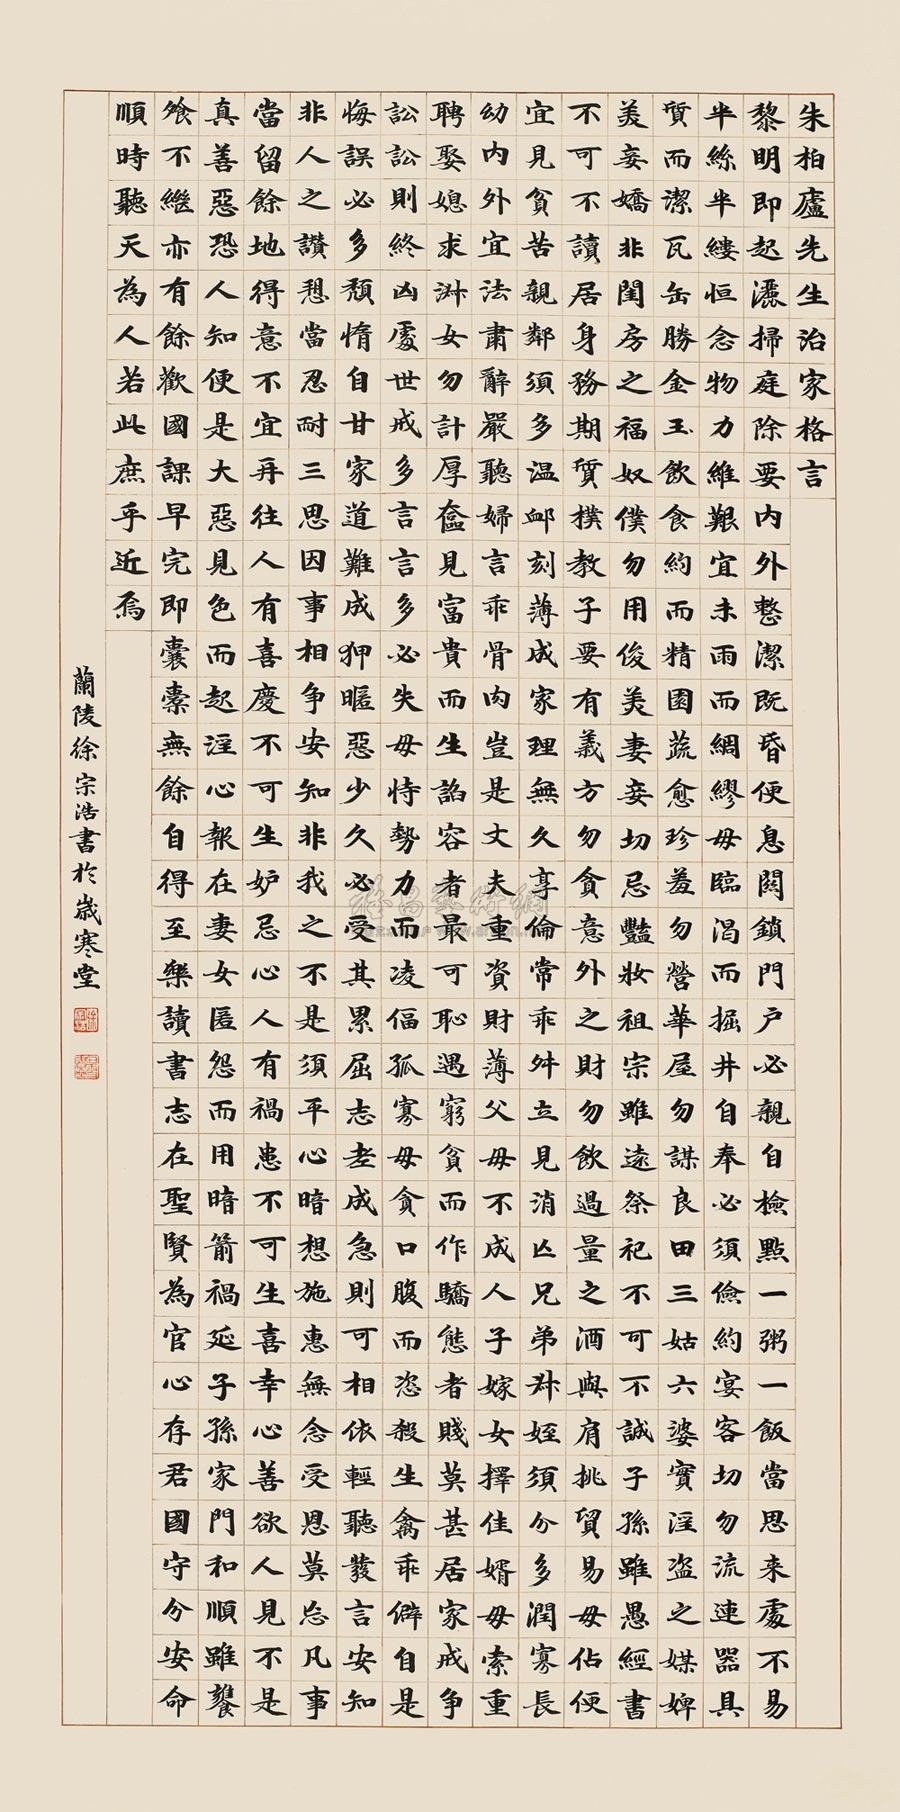 朱柏廬先生治家格言
黎明即起灑掃庭除要內外整潔既昏便息關鎖門戶必親自檢點一粥一飯當思来處不易
半絲半縷恒念物力維艱宜未雨而綢繆毋臨渴而掘井自奉必須儉約宴客切勿流連器具
質而潔瓦缶勝金玉飲食約而精園蔬愈珍羞勿營華屋勿謀良田三姑六婆實淫盜之媒婢
美妾嬌非閨房之福奴僕勿用俊美妻妾切忌豔妝祖宗雖遠祭祀不可不誠子孫雖愚經書
不可不讀居身務期質樸教子要有義方勿貪意外之財勿飲過量之酒與肩挑貿易毋佔便
宜見貧苦親鄰須多温卹刻薄成家理無久享倫常乖舛立見消亡兄弟叔姪須分多潤寡長
幼內外宜法肅辭嚴聽婦言乖骨肉豈是丈夫重資財薄父母不成人子嫁女擇佳婿毋索重
聘娶媳求淑女勿計厚奩見富貴而生諂容者最可恥遇窮貧而作驕態者賤莫甚居家戒爭
訟訟則終凶處世戒多言言多必失毋恃勢力而凌偪孤寡毋貪口腹而恣殺生禽乖僻自是
悔誤必多頹惰自甘家道難成狎暱惡少久必受其累屈志老成急則可相依輕聽發言安知
非人之讚愬當忍耐三思因事相爭安知非我之不是須平心暗想施惠無念受恩莫忘凡事
當留餘地得意不宜再往人有喜慶不可生妒忌心人有禍患不可生喜幸心善欲人見不是
真善惡恐人知便是大惡見色而起淫心報在妻女匿怨而用暗箭禍延子孫家門和順雖饔
飧不繼亦有餘歡國課早完即囊橐無餘自得至樂讀書志在聖賢為官心存君國守分安命
順時聽天為人若此庶乎近焉
蘭陵徐宗浩書於歲寒堂